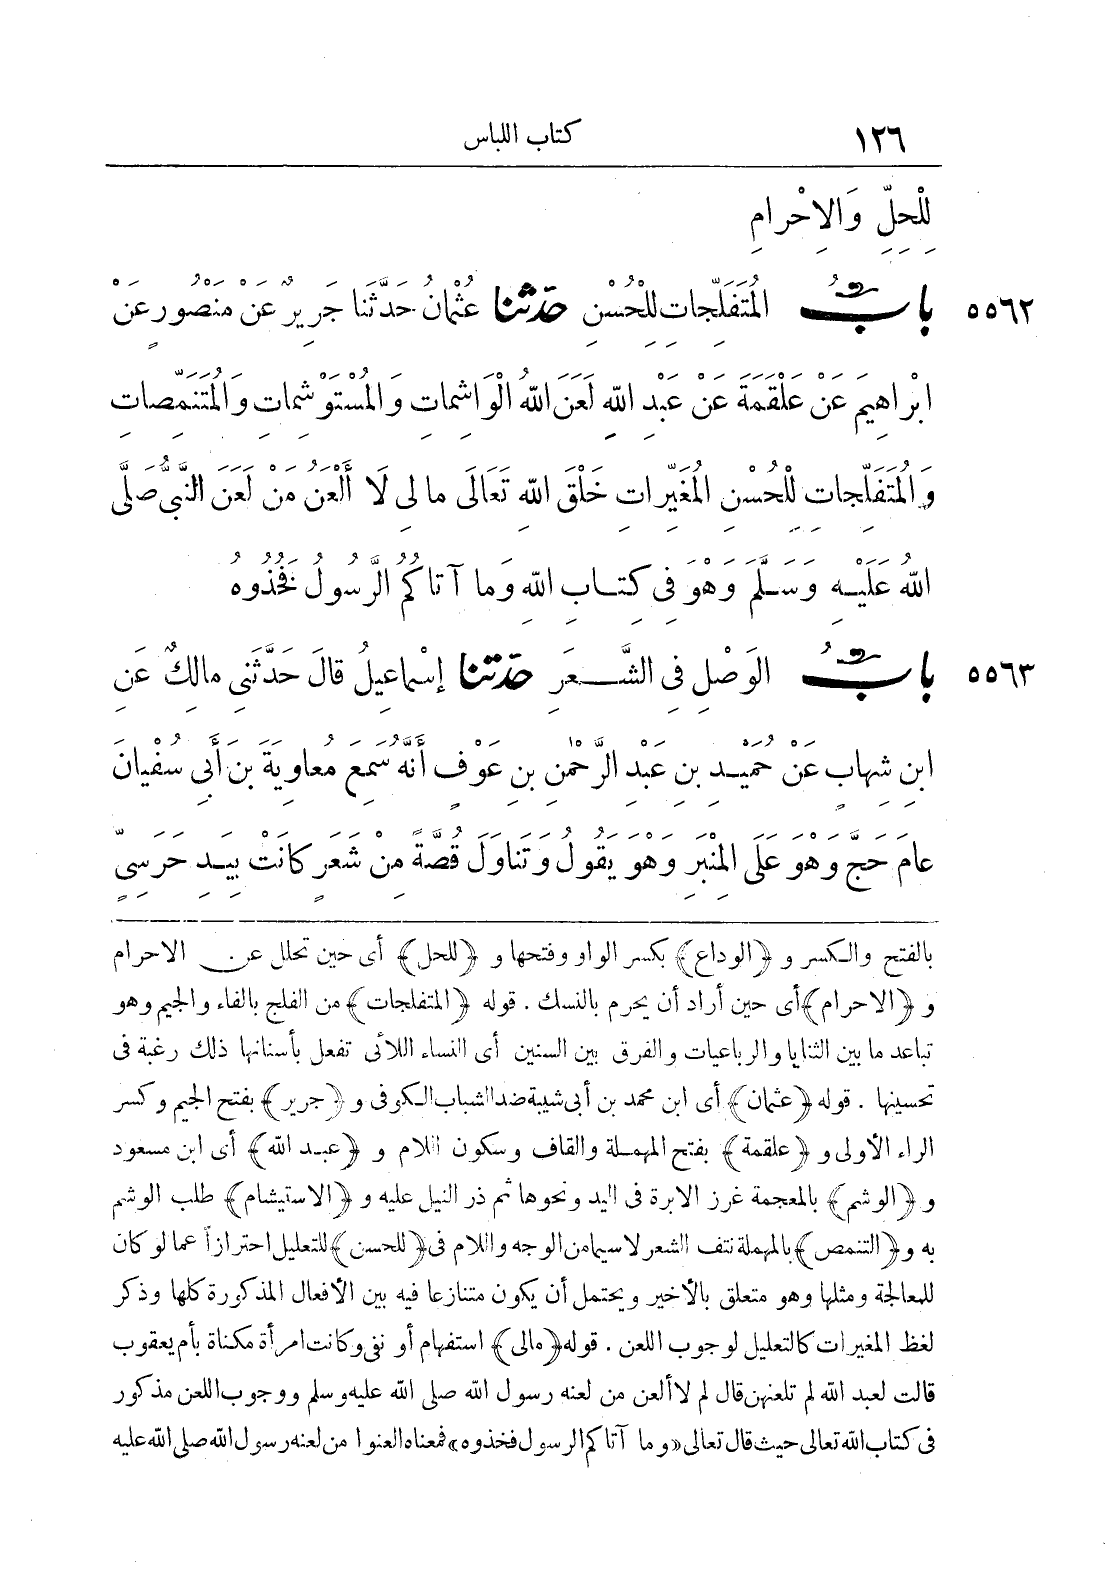 ١٢٦ كتاب اللباس
لِلْحِلِّ وَالاِحْرامِ
٥٥٦٢ بابُ المُتَفَلِّجاتِ لِلْحُسْنِ حَدَّثَنا عُثْمانُ حَدَّثَنا جَرِيرٌ عَنْ مَنْصُورٍ عَنْ
ابْراهِيمَ عَنْ عَلْقَمَةَ عَنْ عَبْدِ اللهِ لَعَنَ اللهُ الْوَاشِماتِ وَالْمُسْتَوْشِماتِ وَالْمُتَنَمِّصاتِ
وَالْمُتَفَلِّجاتِ لِلْحُسْنِ الْمُغَيِّراتِ خَلْقَ اللهِ تَعَالَى مالِى لَا أَلْعَنُ مَنْ لَعَنَ النَّبِىُّ صَلَّى
اللهُ عَلَيْهِ وَسَلَّمَ وَهْوَ فِى كِتابِ اللهِ وَما آتاكُمُ الرَّسُولُ فَخُذُوهُ
٥٥٦٣ بابُ الوَصْلِ فِى الشَّعَرِ حَدَّثَنا إسْماعِيلُ قالَ حَدَّثَنِى مالِكٌ عَنِ
ابنِ شِهابٍ عَنْ حُمَيْدِ بنِ عَبْدِ الرَّحْمٰنِ بنِ عَوْفٍ أَنَّهُ سَمِعَ مُعاوِيَةَ بنَ أَبِى سُفْيانَ
عامَ حَجَّ وَهْوَ عَلَى الْمِنْبَرِ وَهْوَ يَقُولُ وَتَناوَلَ قُصَّةً مِنْ شَعَرٍ كانَتْ بِيَدِ حَرَسِىٍّ
بالفتح والكسر و ﴿الوداع﴾ بكسر الواو وفتحها و ﴿للحل﴾ أى حين تحلل عن الاحرام
و ﴿الاحرام﴾ أى حين أراد أن يحرم بالنسك . قوله ﴿المتفلجات﴾ من الفلج بالفاء والجيم وهو
تباعد ما بين الثنايا والرباعيات والفرق بين السنين أى النساء اللائى تفعل بأسنانها ذلك رغبة فى
تحسينها . قوله ﴿عثمان﴾ أى ابن محمد بن أبى شيبة ضد الشباب الكوفى و ﴿جرير﴾ بفتح الجيم وكسر
الراء الأولى و ﴿علقمة﴾ بفتح المهملة والقاف وسكون اللام و ﴿عبد الله﴾ أى ابن مسعود
و ﴿الوشم﴾ بالمعجمة غرز الابرة فى اليد ونحوها ثم ذر النيل عليه و ﴿الاستيشام﴾ طلب الوشم
به و ﴿التنمص﴾ بالمهملة نتف الشعر لا سيما من الوجه واللام فى ﴿للحسن﴾ للتعليل احترازاً عما لو كان
للمعالجة ومثلها وهو متعلق بالأخير ويحتمل أن يكون متنازعا فيه بين الأفعال المذكورة كلها وذكر
لغظ المغيرات كالتعليل لوجوب اللعن . قوله ﴿مالى﴾ استفهام أو نفى وكانت امرأة مكناة بأم يعقوب
قالت لعبد الله لم تلعنهن قال لم لا ألعن من لعنه رسول الله صلى الله عليه وسلم ووجوب اللعن مذكور
فى كتاب الله تعالى حيث قال تعالى «وما آتاكم الرسول فخذوه» فمعناه العنوا من لعنه رسول الله صلى الله عليه